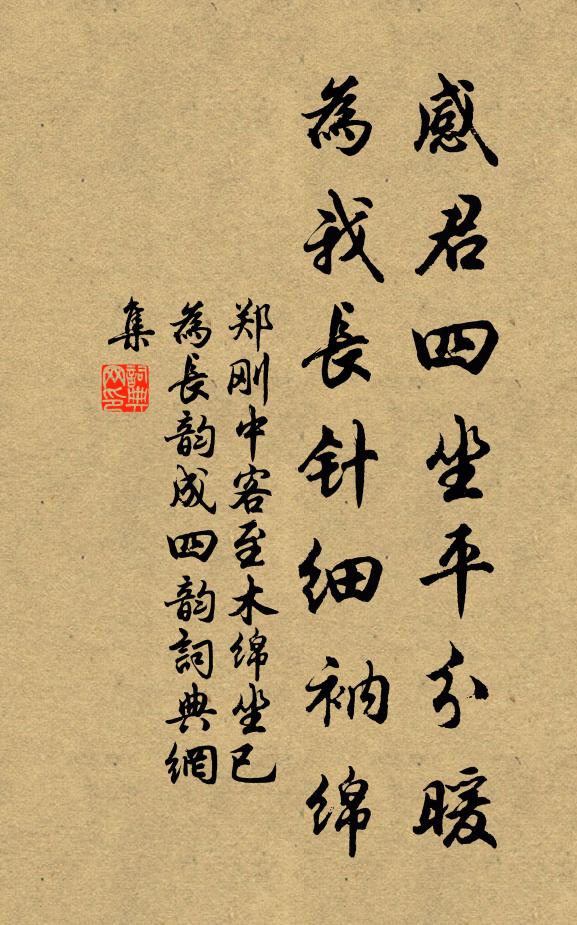 感君四坐平分暖
為我長针細衲绵
郑刚中客至木绵坐已
為長韵成四韵詞典網
集
詞典網印